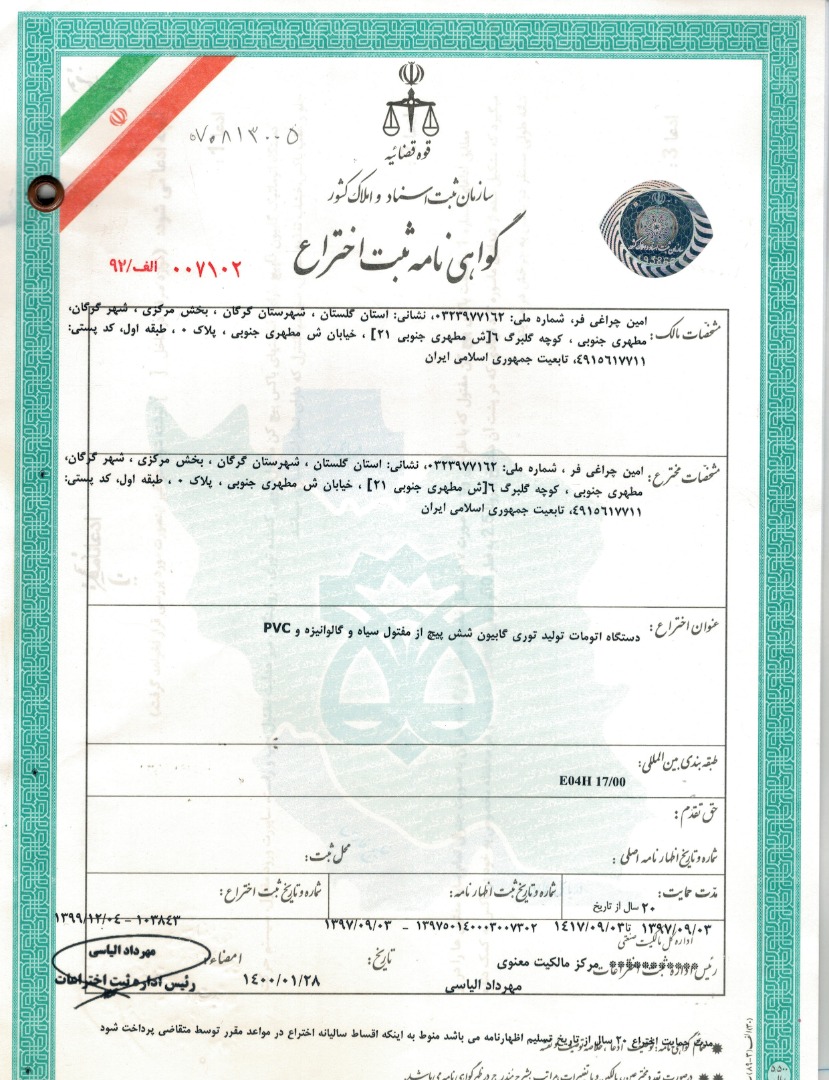 قوه قضائیه
سازمان ثبت اسناد و املاک کشور
گواهی نامه ثبت اختراع
الف/۹۲ ۰۰۷۱۰۲
مشخصات مالک: امین چراغی فر، شماره ملی: ۰۳۲۳۹۷۷۱۶۲، نشانی: استان گلستان ، شهرستان گرگان ، بخش مرکزی ، شهر گرگان،
مطهری جنوبی ، کوچه گلبرگ ۶[ش مطهری جنوبی ۲۱] ، خیابان ش مطهری جنوبی ، پلاک ۰ ، طبقه اول، کد پستی:
۴۹۱۵۶۱۷۷۱۱، تابعیت جمهوری اسلامی ایران
مشخصات مخترع: امین چراغی فر ، شماره ملی: ۰۳۲۳۹۷۷۱۶۲، نشانی: استان گلستان ، شهرستان گرگان ، بخش مرکزی ، شهر گرگان،
مطهری جنوبی ، کوچه گلبرگ ۶[ش مطهری جنوبی ۲۱] ، خیابان ش مطهری جنوبی ، پلاک ۰ ، طبقه اول، کد پستی:
۴۹۱۵۶۱۷۷۱۱، تابعیت جمهوری اسلامی ایران
عنوان اختراع: دستگاه اتومات تولید توری گابیون شش پیچ از مفتول سیاه و گالوانیزه و PVC
طبقه بندی بین المللی:
E04H 17/00
حق تقدم:
شماره و تاریخ اظهارنامه اصلی : محل ثبت:
مدت حمایت: شماره و تاریخ ثبت اظهارنامه: شماره و تاریخ ثبت اختراع:
۲۰ سال از تاریخ
۱۳۹۷/۰۹/۰۳ تا ۱۴۱۷/۰۹/۰۳ ۱۳۹۷۵۰۱۴۰۰۰۳۰۰۷۳۰۲ - ۱۳۹۷/۰۹/۰۳ ۱۰۳۸۴۳ - ۱۳۹۹/۱۲/۰۴
اداره کل مالکیت صنعتی
مرکز مالکیت معنوی تاریخ: امضاء: مهرداد الیاسی
مهرداد الیاسی ۱۴۰۰/۰۱/۲۸ رئیس اداره ثبت اختراعات
مدت حمایت اختراع ۲۰ سال از تاریخ تسلیم اظهارنامه می باشد منوط به اینکه اقساط سالیانه اختراع در مواعد مقرر توسط متقاضی پرداخت شود